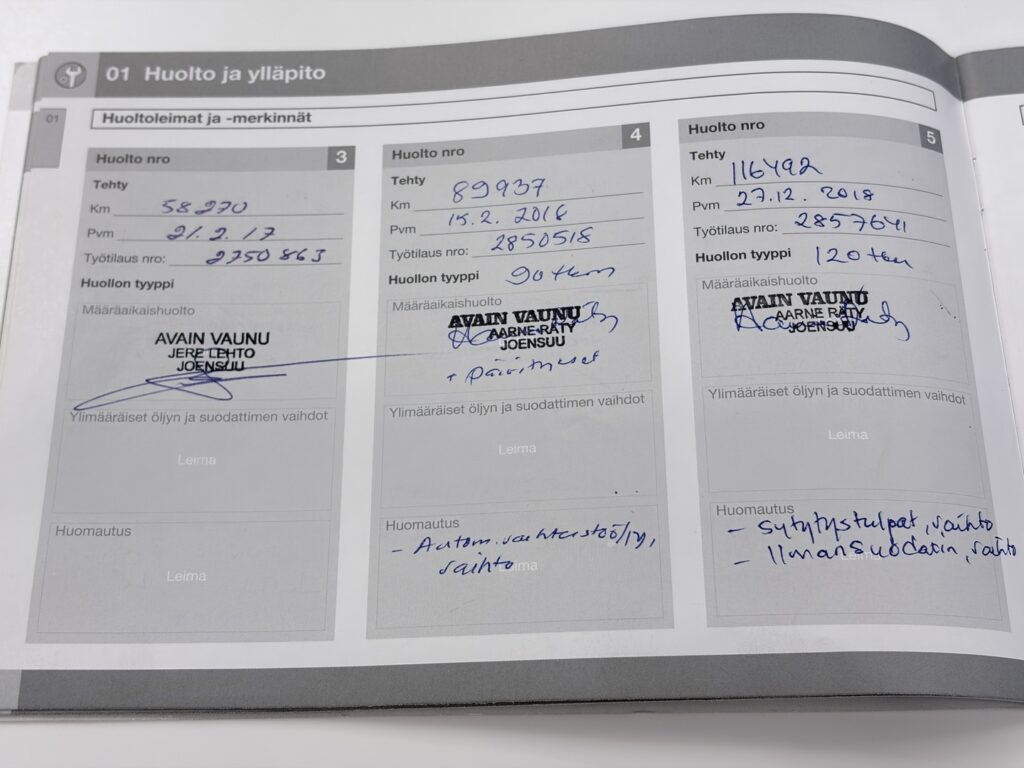 01 Huolto ja ylläpito
01
Huoltoleimat ja -merkinnät
Huolto nro 3
Tehty
Km 58270
Pvm 21.2.17
Työtilaus nro: 2750863
Huollon tyyppi
Määräaikaishuolto
AVAIN VAUNU
JERE LEHTO
JOENSUU
Ylimääräiset öljyn ja suodattimen vaihdot
Leima
Huomautus
Leima
Huolto nro 4
Tehty
Km 89937
Pvm 15.2.2018
Työtilaus nro: 2850518
Huollon tyyppi 90 tkm
Määräaikaishuolto
AVAIN VAUNU
AARNE RÄTY
JOENSUU
+ päivitykset
Ylimääräiset öljyn ja suodattimen vaihdot
Leima
Huomautus
- Autom.vaihteistoöljy,
vaihto
Huolto nro 5
Tehty
Km 116492
Pvm 27.12.2018
Työtilaus nro: 2857641
Huollon tyyppi 120 tkm
Määräaikaishuolto
AVAIN VAUNU
AARNE RÄTY
JOENSUU
Ylimääräiset öljyn ja suodattimen vaihdot
Leima
Huomautus
- Sytytystulpat, vaihto
- Ilmansuodatin, vaihto